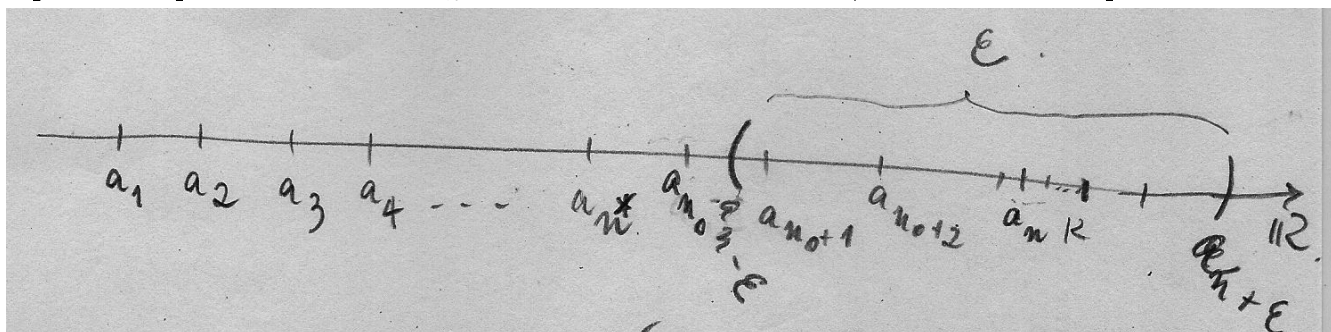 ε
a₁ a₂ a₃ a₄ - - - - aₙ* aₙ₀ aₙ₀₊₁ aₙ₀₊₂ aₙ K ℝ
-ε
n + ε